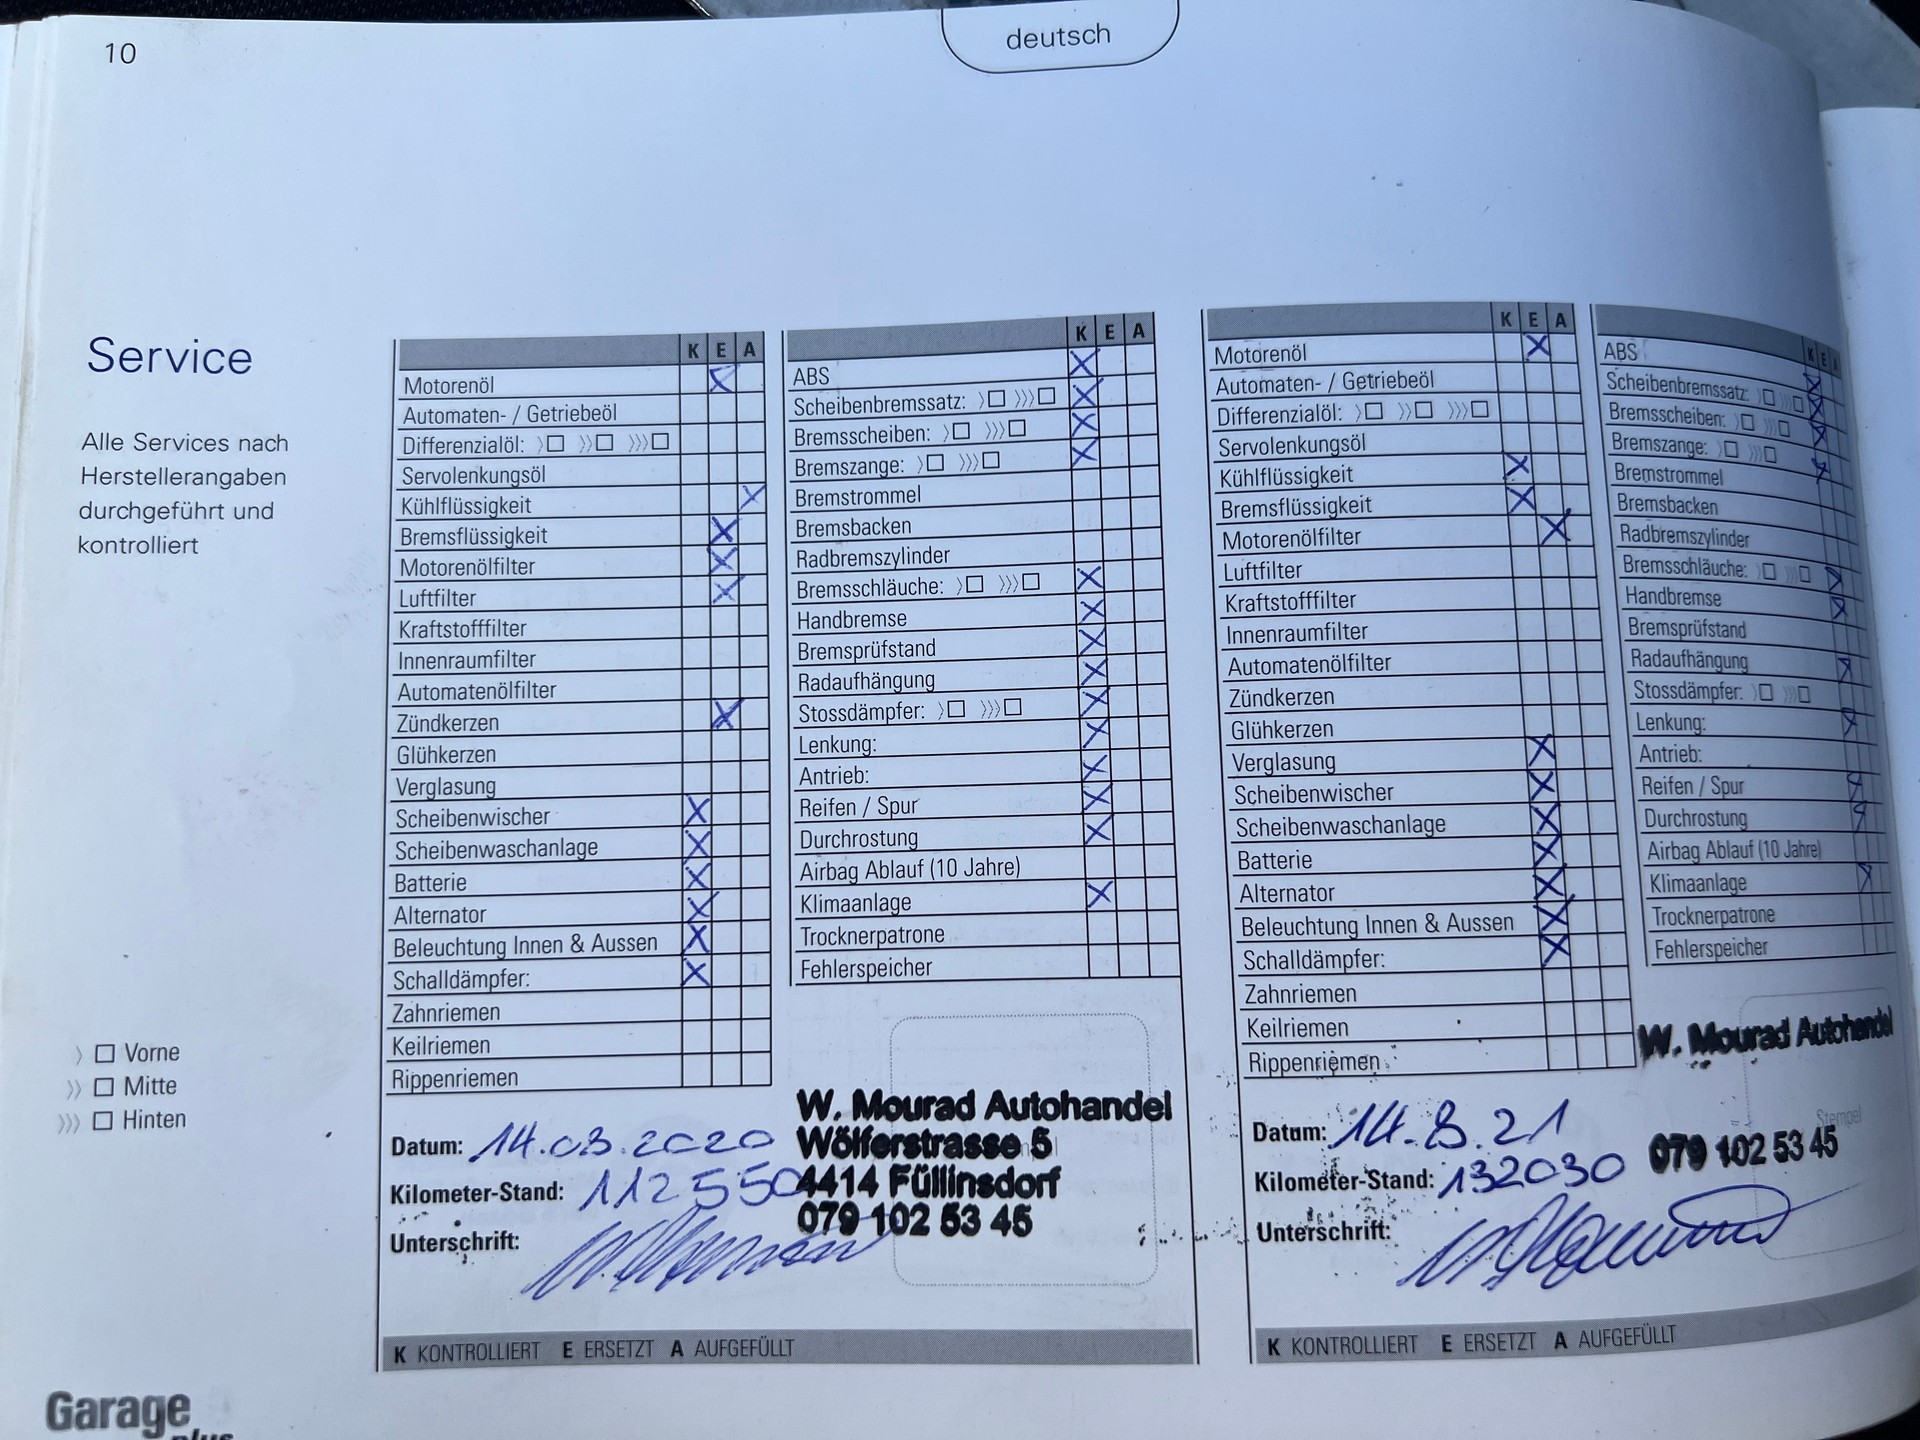 10
deutsch
Service
Alle Services nach
Herstellerangaben
durchgeführt und
kontrolliert
〉 □ Vorne
〉〉 □ Mitte
〉〉〉 □ Hinten
K E A
Motorenöl
Automaten- / Getriebeöl
Differenzialöl: 〉□ 〉〉□ 〉〉〉□
Servolenkungsöl
Kühlflüssigkeit
Bremsflüssigkeit
Motorenölfilter
Luftfilter
Kraftstofffilter
Innenraumfilter
Automatenölfilter
Zündkerzen
Glühkerzen
Verglasung
Scheibenwischer
Scheibenwaschanlage
Batterie
Alternator
Beleuchtung Innen & Aussen
Schalldämpfer:
Zahnriemen
Keilriemen
Rippenriemen
K E A
ABS
Scheibenbremssatz: 〉□ 〉〉〉□
Bremsscheiben: 〉□ 〉〉〉□
Bremszange: 〉□ 〉〉〉□
Bremstrommel
Bremsbacken
Radbremszylinder
Bremsschläuche: 〉□ 〉〉〉□
Handbremse
Bremsprüfstand
Radaufhängung
Stossdämpfer: 〉□ 〉〉〉□
Lenkung:
Antrieb:
Reifen / Spur
Durchrostung
Airbag Ablauf (10 Jahre)
Klimaanlage
Trocknerpatrone
Fehlerspeicher
Datum: 14.03.2020
Kilometer-Stand: 112550
Unterschrift:
W. Mourad Autohandel
Wölferstrasse 5
4414 Füllinsdorf
079 102 53 45
K KONTROLLIERT E ERSETZT A AUFGEFÜLLT
K E A
Motorenöl
Automaten- / Getriebeöl
Differenzialöl: 〉□ 〉〉□ 〉〉〉□
Servolenkungsöl
Kühlflüssigkeit
Bremsflüssigkeit
Motorenölfilter
Luftfilter
Kraftstofffilter
Innenraumfilter
Automatenölfilter
Zündkerzen
Glühkerzen
Verglasung
Scheibenwischer
Scheibenwaschanlage
Batterie
Alternator
Beleuchtung Innen & Aussen
Schalldämpfer:
Zahnriemen
Keilriemen
Rippenriemen
K E A
ABS
Scheibenbremssatz: 〉□ 〉〉〉□
Bremsscheiben: 〉□ 〉〉〉□
Bremszange: 〉□ 〉〉〉□
Bremstrommel
Bremsbacken
Radbremszylinder
Bremsschläuche: 〉□ 〉〉〉□
Handbremse
Bremsprüfstand
Radaufhängung
Stossdämpfer: 〉□ 〉〉〉□
Lenkung:
Antrieb:
Reifen / Spur
Durchrostung
Airbag Ablauf (10 Jahre)
Klimaanlage
Trocknerpatrone
Fehlerspeicher
W. Mourad Autohandel
Stempel
079 102 53 45
Datum: 14.8.21
Kilometer-Stand: 132030
Unterschrift:
K KONTROLLIERT E ERSETZT A AUFGEFÜLLT
Garage
plus